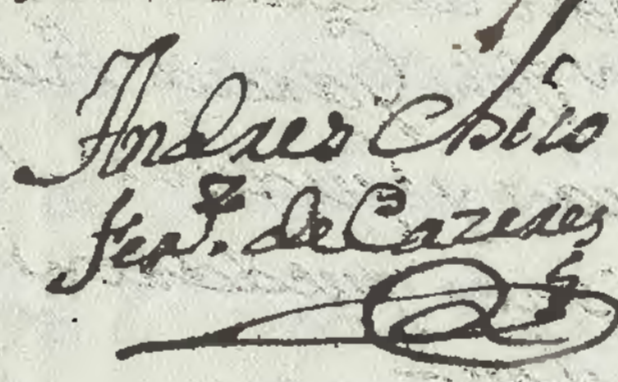 Andres Chico
fern.z de Cazeres